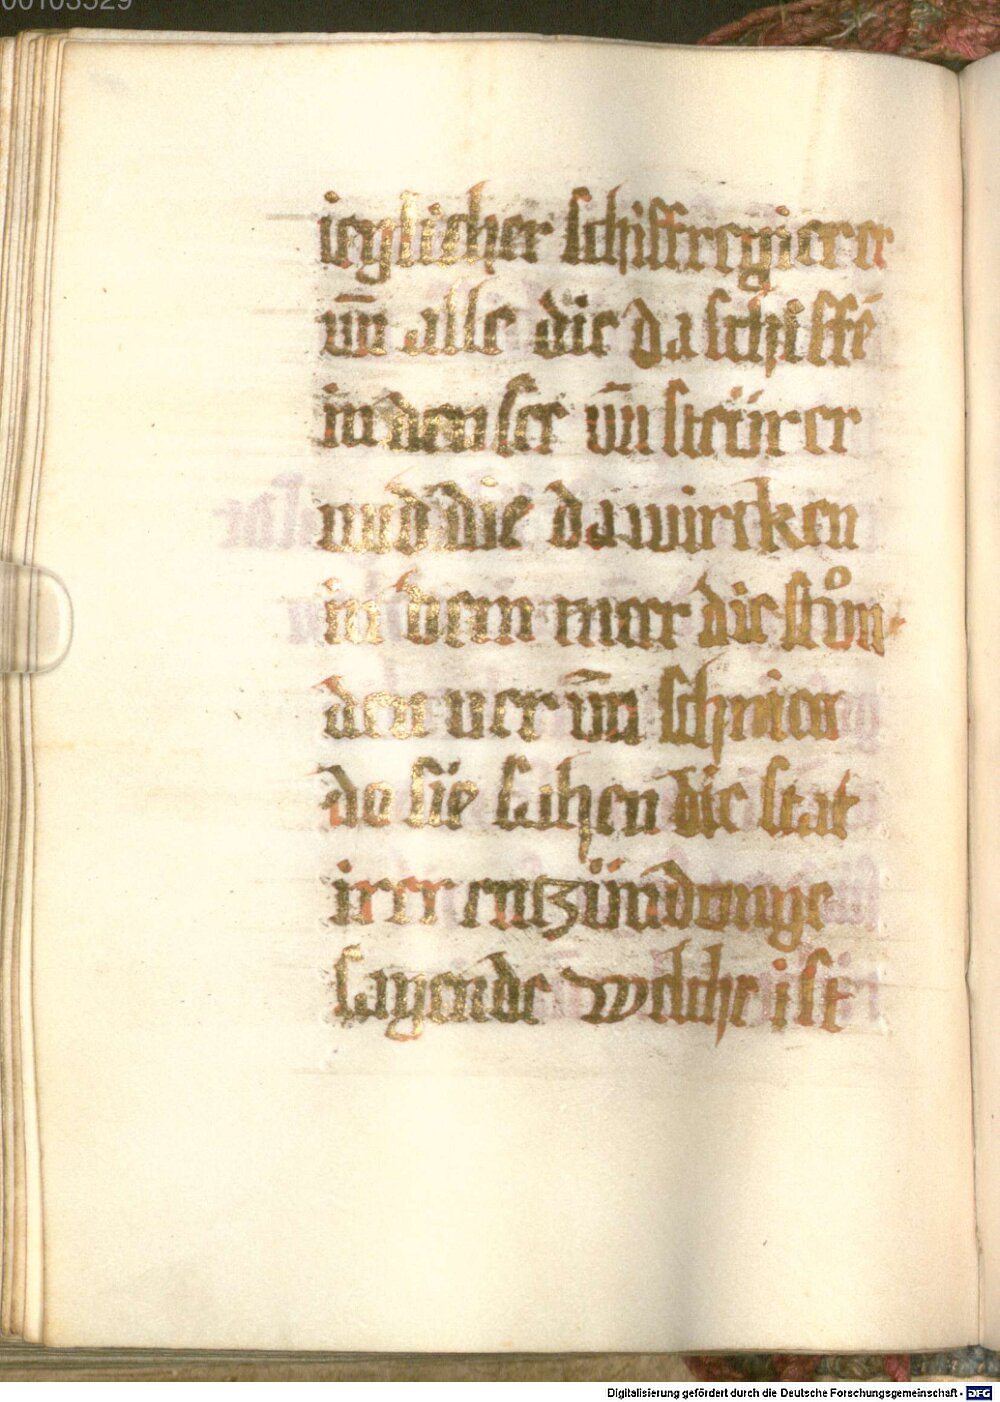 00103529
ieglicher schiffregierer
vn̄ alle die da schiffē
in den see vn̄ steürer
vnd die da wircken
in dem mer die stůn
den uer vn̄ schrien
do sie sahen die stat
irer entzündunge
sagende welche ist
Digitalisierung gefördert durch die Deutsche Forschungsgemeinschaft - DFG